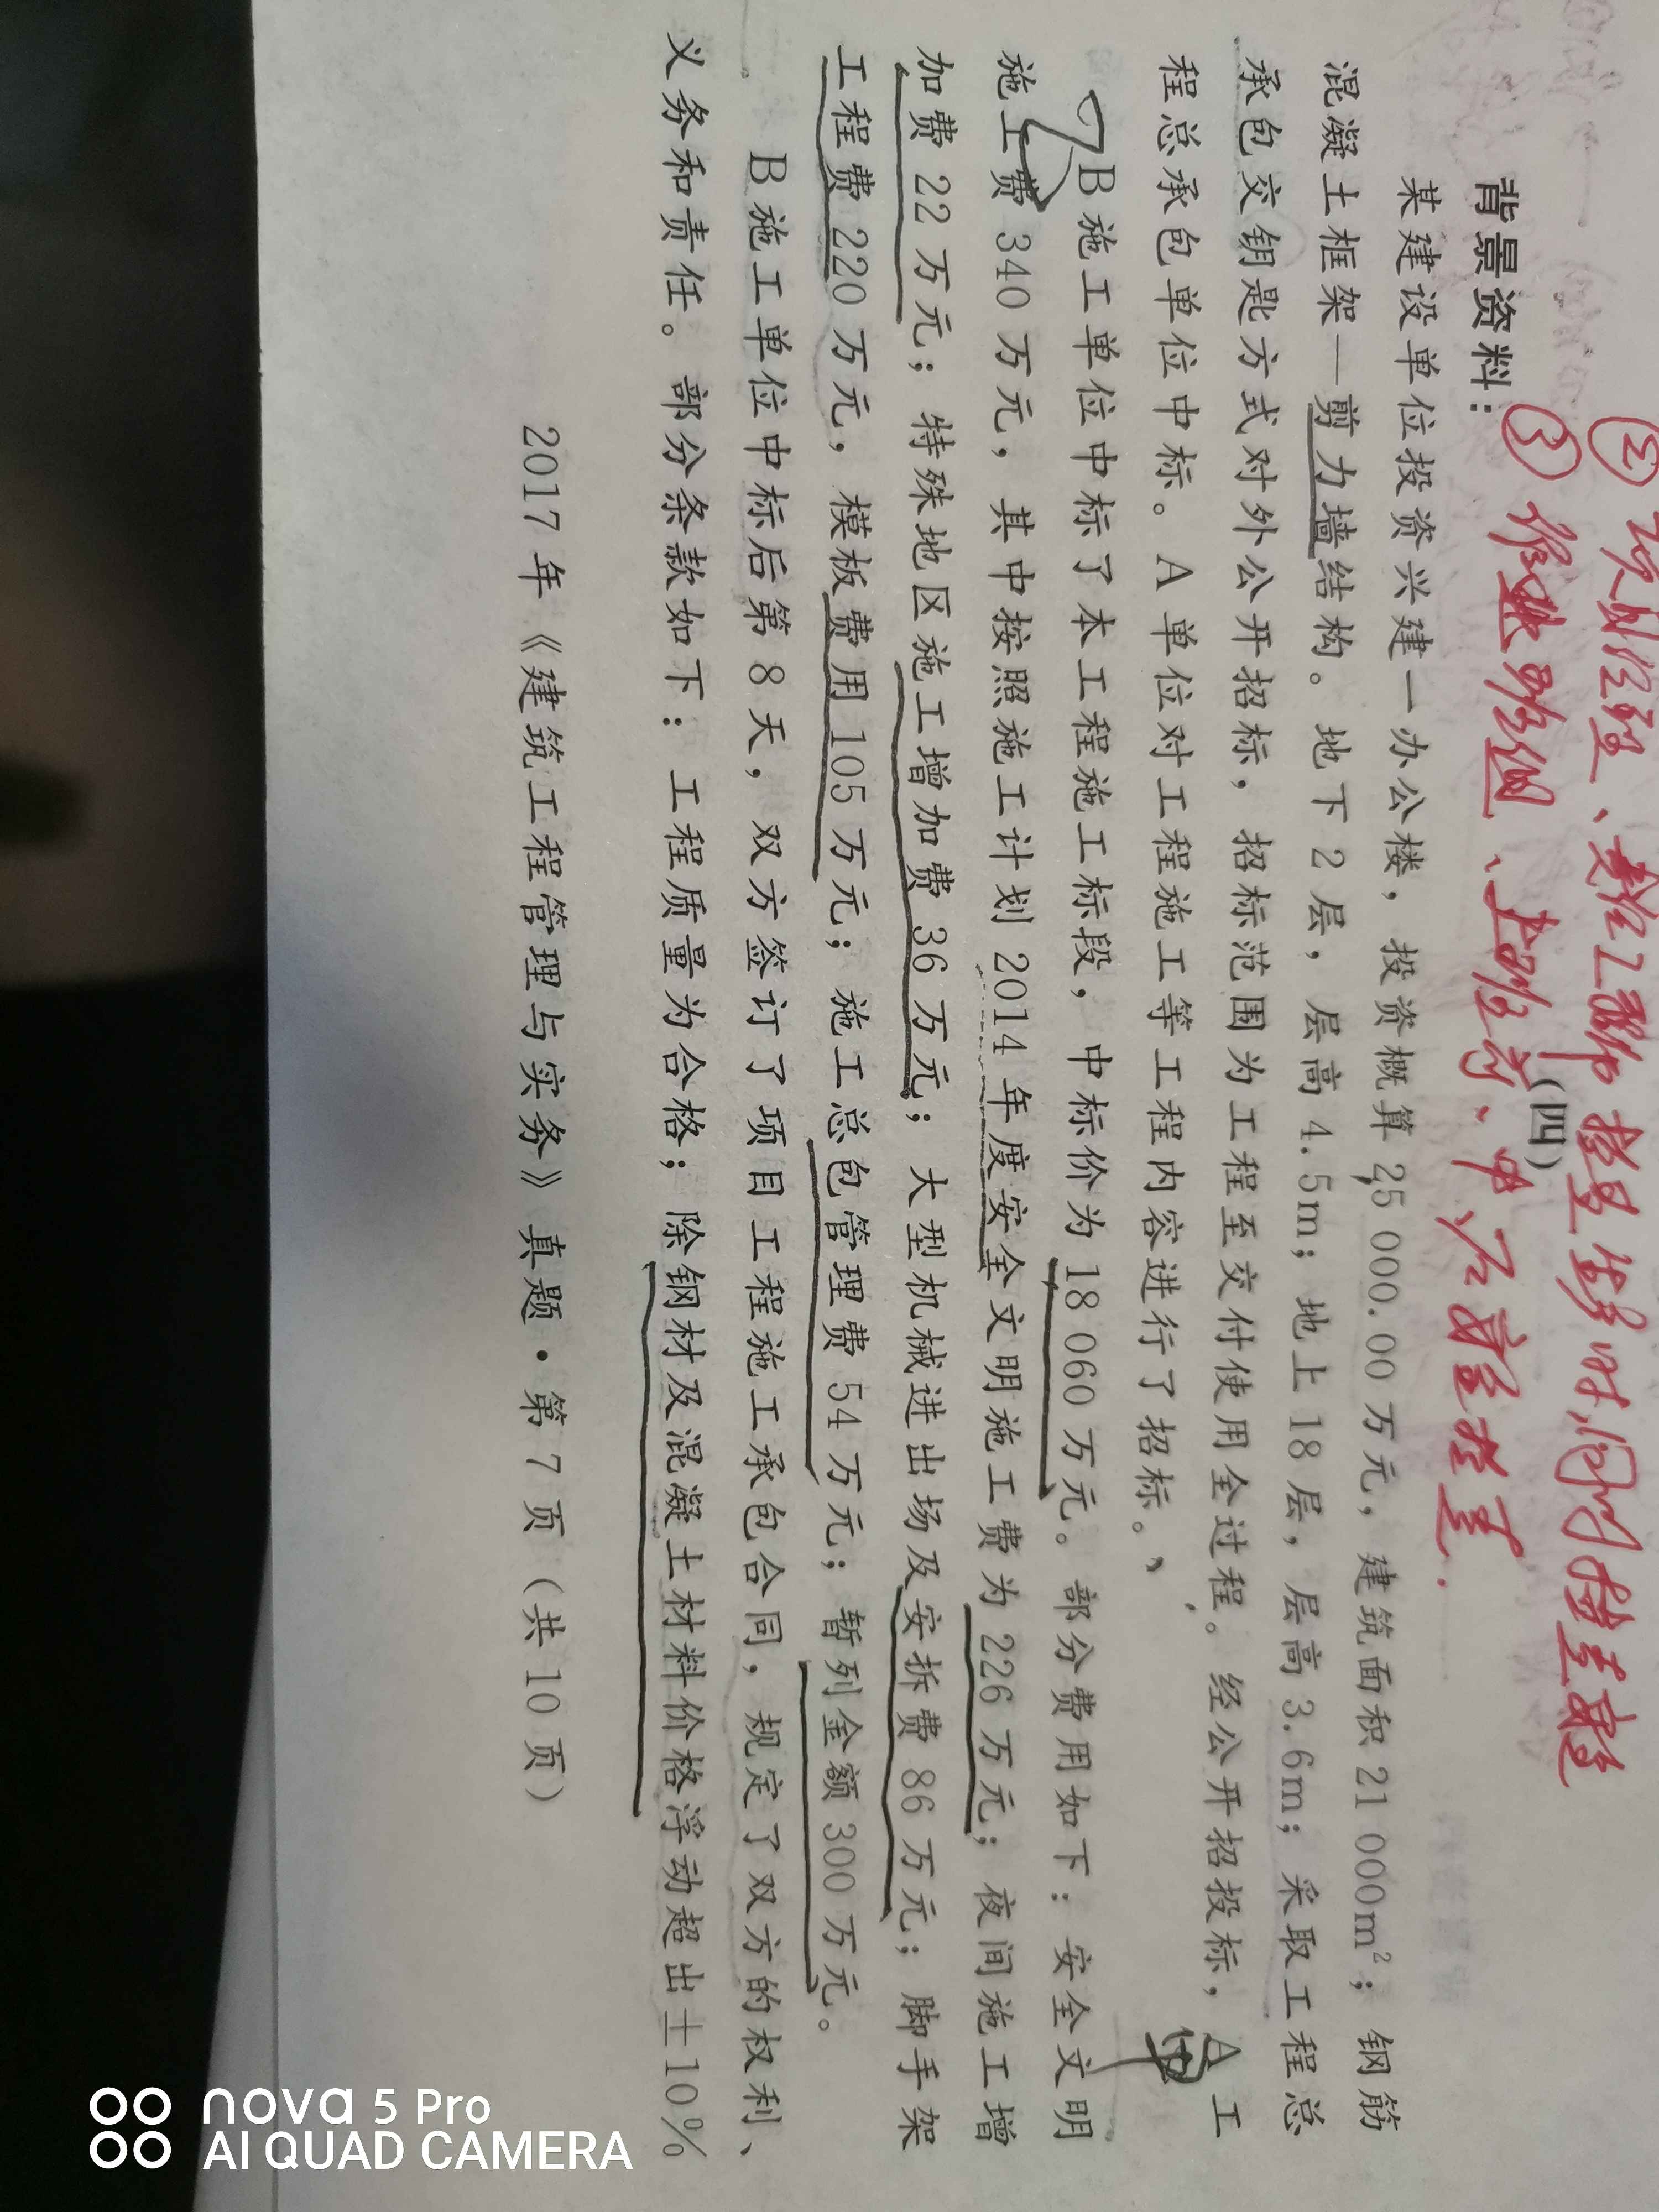 (四)
背景资料：
某建设单位投资兴建一办公楼，投资概算 25 000.00 万元，建筑面积 21 000m²；钢筋
混凝土框架—剪力墙结构。地下 2 层，层高 4.5m；地上 18 层，层高 3.6m；采取工程总
承包交钥匙方式对外公开招标，招标范围为工程至交付使用全过程。经公开招投标，A 工
程总承包单位中标。A 单位对工程施工等工程内容进行了招标。
B 施工单位中标了本工程施工标段，中标价为 18 060 万元。部分费用如下：安全文明
施工费 340 万元，其中按照施工计划 2014 年度安全文明施工费为 226 万元；夜间施工增
加费 22 万元；特殊地区施工增加费 36 万元；大型机械进出场及安拆费 86 万元；脚手架
工程费 220 万元，模板费用 105 万元；施工总包管理费 54 万元；暂列金额 300 万元。
B 施工单位中标后第 8 天，双方签订了项目工程施工承包合同，规定了双方的权利、
义务和责任。部分条款如下：工程质量为合格；除钢材及混凝土材料价格浮动超出±10%
2017 年《建筑工程管理与实务》真题·第 7 页（共 10 页）
nova 5 Pro
AI QUAD CAMERA